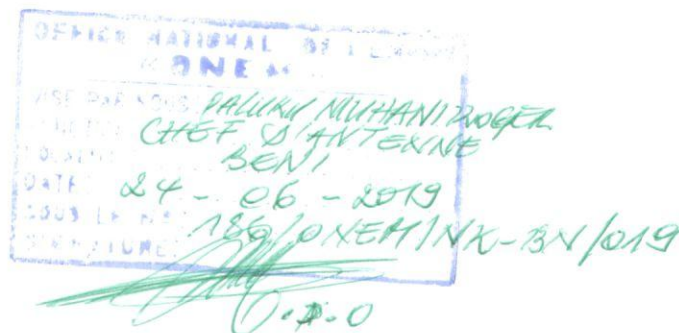 OFFICE NATIONAL DE L'EMPLOI
"ONEM"
VISE PAR NOUS PALUKU MUHANI ROGER
CHEF D'ANTENNE
LOCALITE BENI
DATE: 24-06-2019
SOUS LE N° 186/ONEM/NK-BN/019
SIGNATURE:
P.O